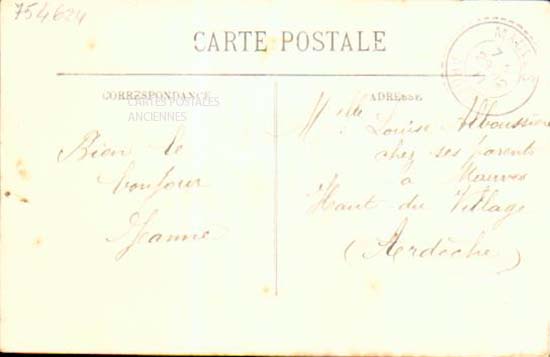 754624
CARTE POSTALE
CORRESPONDANCE
CARTES POSTALES
ANCIENNES
ADRESSE
Bien le
bonjour
Jeanne
Melle Louise Alboussière
chez ses parents
à Mauves
Haut du Village
(Ardèche)